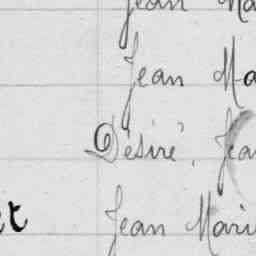 Jean Ma
Jean Ma
Désiré, Jea
et Jean Mari